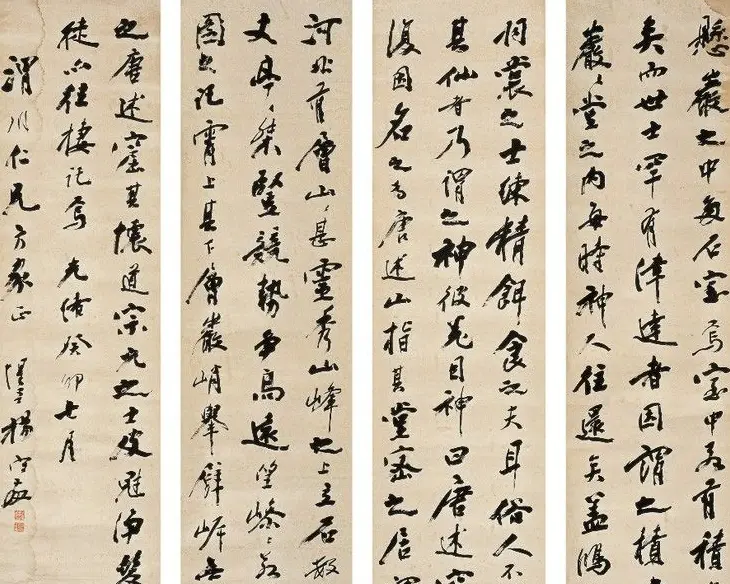 懸巖之中多石室焉室中若有積
矣而世士罕有津達者因謂之積
巖〻堂之內每時神人往還矣蓋鴻
羽裳之士練精餌食之夫耳俗人不
其仙者乃謂之神彼羌目神曰唐述
復因名之為唐述山指其堂密之居
河北有層山〻甚靈秀山峰之上立石數
丈亭〻桀豎競勢爭高遠望嵾〻若
圖之託霄上其下層巖峭舉壁岸無
之唐述窟其懷道宗玄之士皮冠淨髮
徒亦往棲託焉 光緒癸卯七月
渭川仁兄方家正 惺吾楊守敬